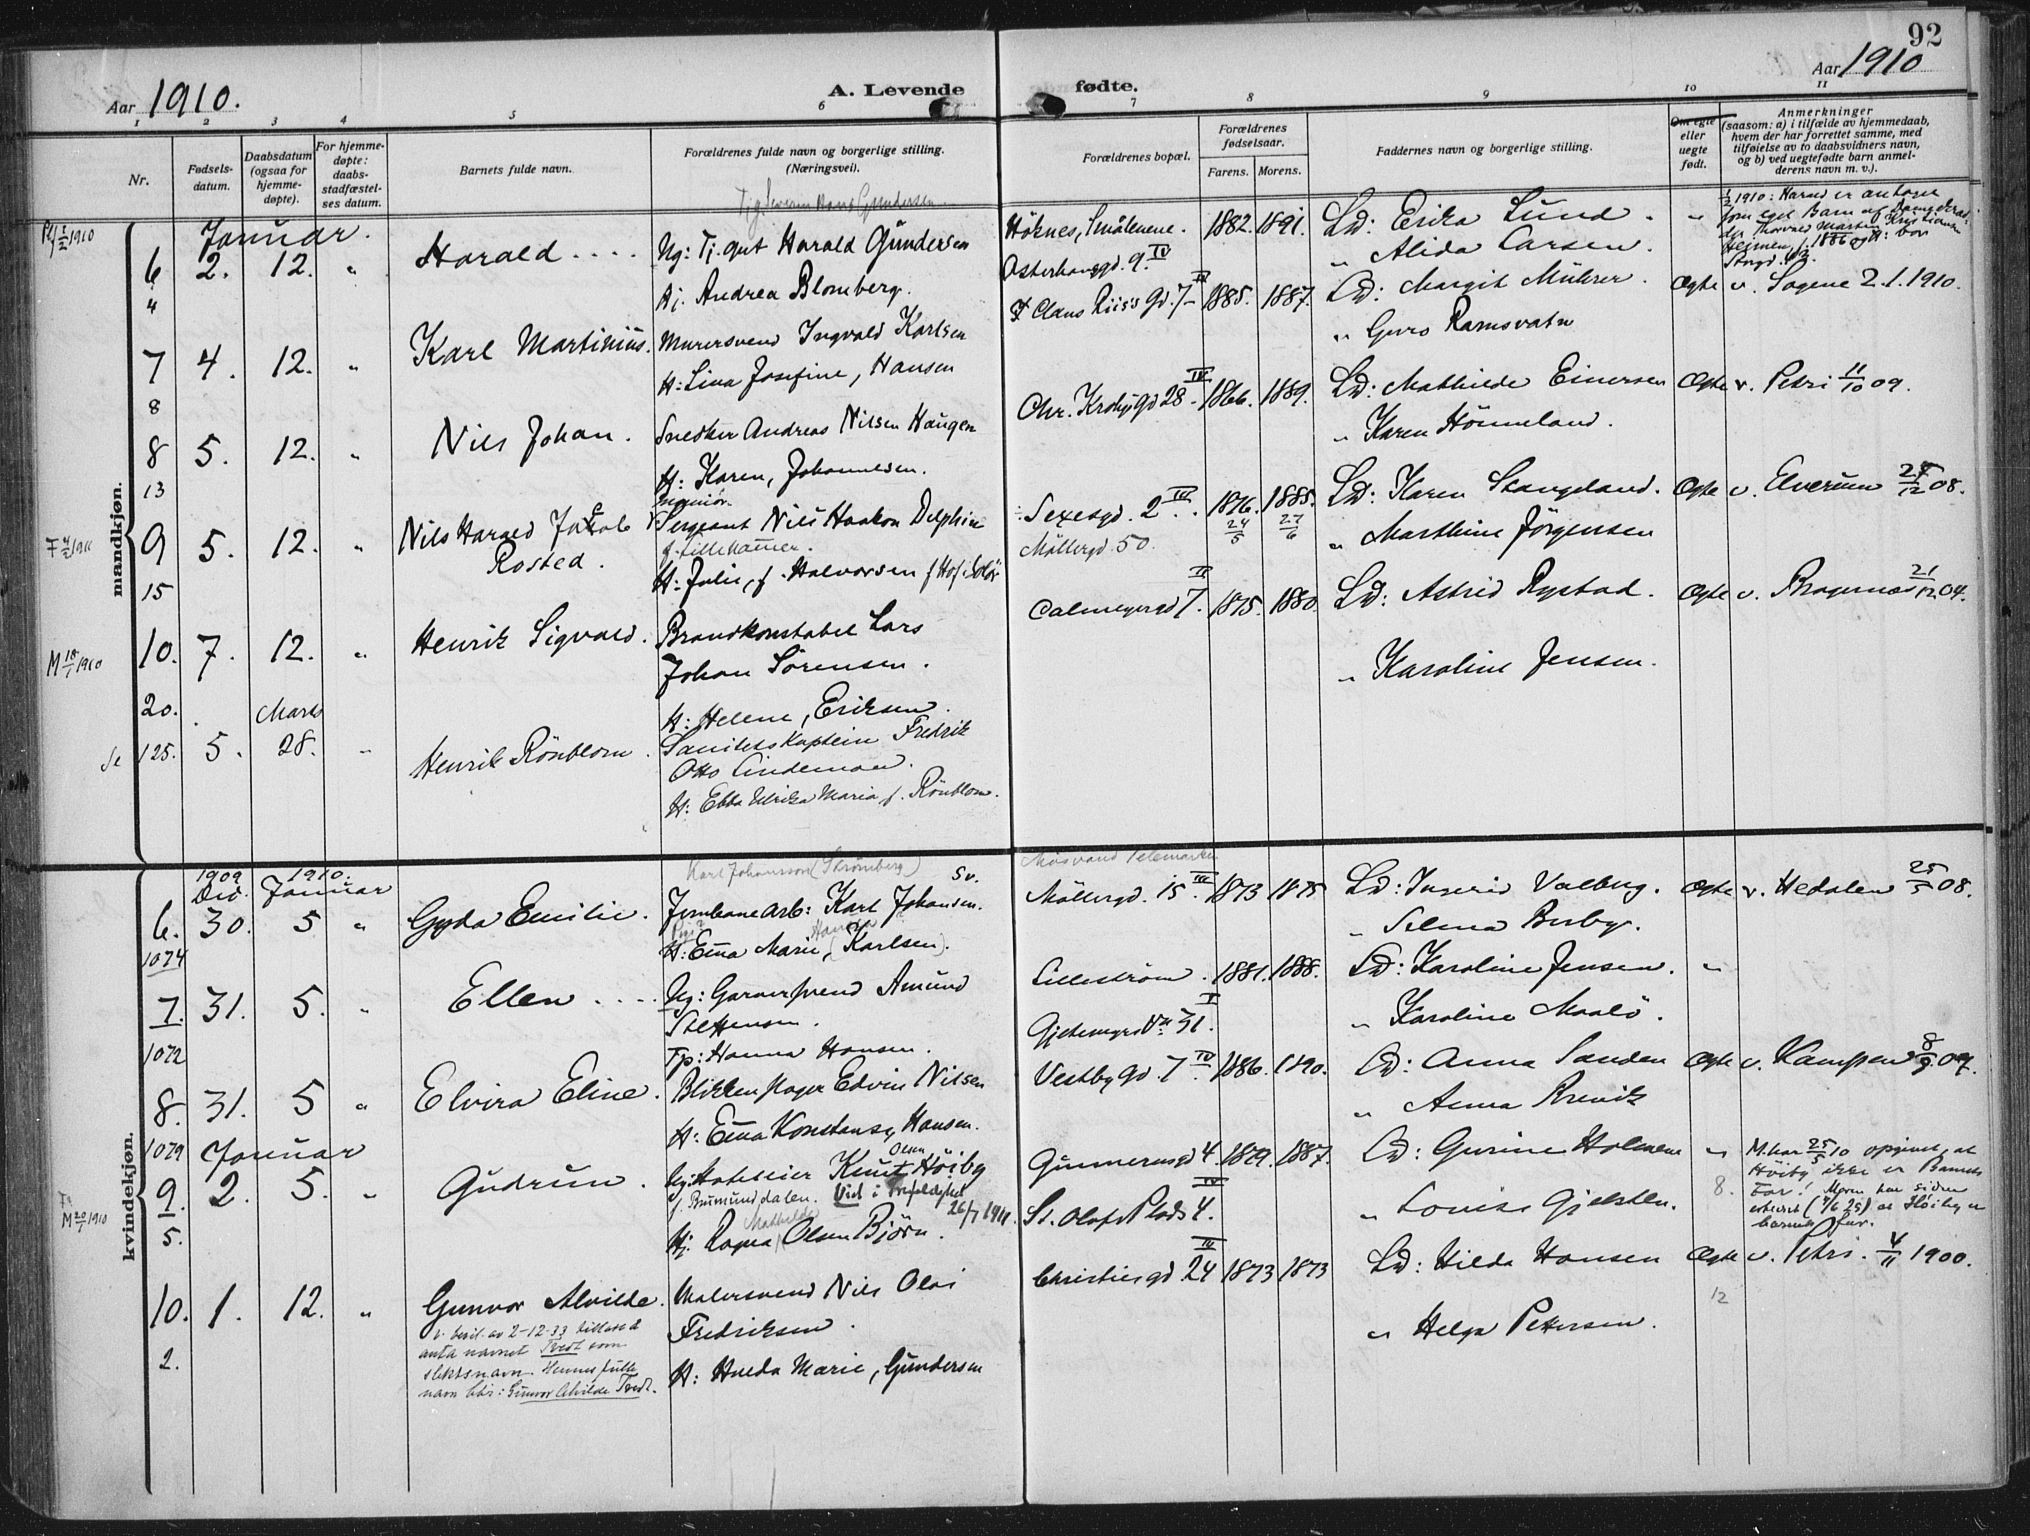 92
Aar 1910.
A. Levende
fødte.
Aar 1910
1 2 3 4 5 6 7 8 9 10 11
Nr.
Fødsels-
datum.
Daabsdatum
(ogsaa for
hjemme-
døpte).
For hjemme-
døpte:
daabs-
stadfæstel-
ses datum.
Barnets fulde navn.
Forældrenes fulde navn og borgerlige stilling.
(Næringsvei).
Forældrenes bopæl.
Forældrenes
fødselsaar.
Farens. Morens.
Faddernes navn og borgerlige stilling.
Om egte
eller
uegte
født.
Anmerkninger
(saasom: a) i tilfælde av hjemmedaab,
hvem der har forrettet samme, med
tilføielse av to daabsvidners navn,
og b) ved uegtefødte barn anmel-
derens navn m. v.).
mandkjøn.
Januar.
6 2. 12. "
4
Harald
Ug: Tj. gut Harald Gundersen
Pj. Andrea Blomberg.
Höknes, Smålenene.
Osterhausgd. 9. IV
1882. 1891.
Ld: Erika Lund
" Alida Larsen.
7 4. 12. "
8
Karl Martinius.
Murersvend Ingvald Karlsen
H: Lina Josefine, Hansen
Claus Riis's Gd. 7
1885. 1887.
Ld: Margit Mührer.
" Guro Ramsvatn
Ægte v. Sagene 2.1.1910.
8 5. 12. "
13
Nils Johan.
Snedker Andreas Nilsen Haugen
H: Karen, Johannesen.
Chr. Krohgs gd 28 IV
1866. 1889.
Ld: Mathilde Einersen
" Karen Hönneland.
Ægte v. Petri 11/10 09.
F 4/2 1911
9 5. 12. "
15
Nils Harald Jakob
Rosted.
Ingeniör
Sergeant Nils Haakon Delphin
f. Lillehammer.
H: Julie, f. Halvorsen f Hof i Solör
Sexesgd. 2 III
Möllergd. 50.
1876. 1885.
24/5 27/6
Ld: Karen Stangeland.
" Marthine Jörgensen
Ægte v. Elverum 27/12 08.
M 18/7 1910
10. 7. 12. "
20.
Henrik Sigvald.
Brandkonstabel Lars
Johan Sörensen.
H: Helene, Eriksen.
Calmeyersgd 7. IV
1875. 1880.
Ld: Astrid Rystad.
" Karoline Jensen.
Ægte v. Bragernæs 21/12 04.
Marts
125. 5. 28. "
Henrik Rönblom.
Sanitetskaptein Fredrik
Otto Lindeman.
H: Ebba Ulrika Maria f. Rönblom.
kvindekjøn.
1909 1910.
Dec. Januar
6. 30. 5 "
1074
Gyda Emilie.
Karl Johansson (Strömberg)
Sv.
Jernbanearb: Karl Johansen.
H: Emma Marie, (Karlsen).
Mösvand Telemarken
Möllergd. 15. III
1873 1875
Ld: Ingerid Valberg.
" Selma Berby.
Ægte v. Hedalen 25/5 08.
7. 31. 5. "
1072
Ellen
Ug: Garversvend Amund
Steffensen.
Tp: Hanna Hansen.
Lilleström.
Gjetemyrsvn 31. V
1881. 1888.
Ld: Karoline Jensen.
" Karoline Maalö.
8. 31. 5 "
1079
Elvira Eline.
Blikkenslager Edvin Nilsen
H: Emma Konstanse, Hansen.
Vestbygd. 7. IV
1886. 1890.
Ld: Anna Sanden
" Anna Brevik
Ægte v. Kampen 8/9 07.
Januar
9. 2. 5. "
5.
M 20/7 1910
Gudrun.
Olsen
Ug: Arbeider Knut Höiby
f. Brumunddalen. Viet i Trefoldighet
26/7 1911.
Mathilde
Pj. Ragna Olsen Björn.
Gunnerusgd 4.
St. Olafs Plads 4. IV
1879. 1887.
Ld: Gurine Holmen
" Louise Gjelsten.
8.
M. har 25/5 10 opgivet at
Höiby ikke er Barnets
Far! Moren har siden
(4/6 25) at Höiby er
barnets far.
10. 1. 12. "
2.
Gunvor Alvilde.
v. bevil. av 2-12-33 tillatt å
anta navnet Tvedt som
slektsnavn. Hennes fulle
navn blir: Gunvor Alvilde Tvedt.
Malersvend Nils Olai
Fredriksen.
H: Hulda Marie, Gundersen
Christiesgd 24 III
1873 1873
Ld: Hilda Hansen
" Helga Pettersen.
Ægte v. Petri. 4/11 1900.
12